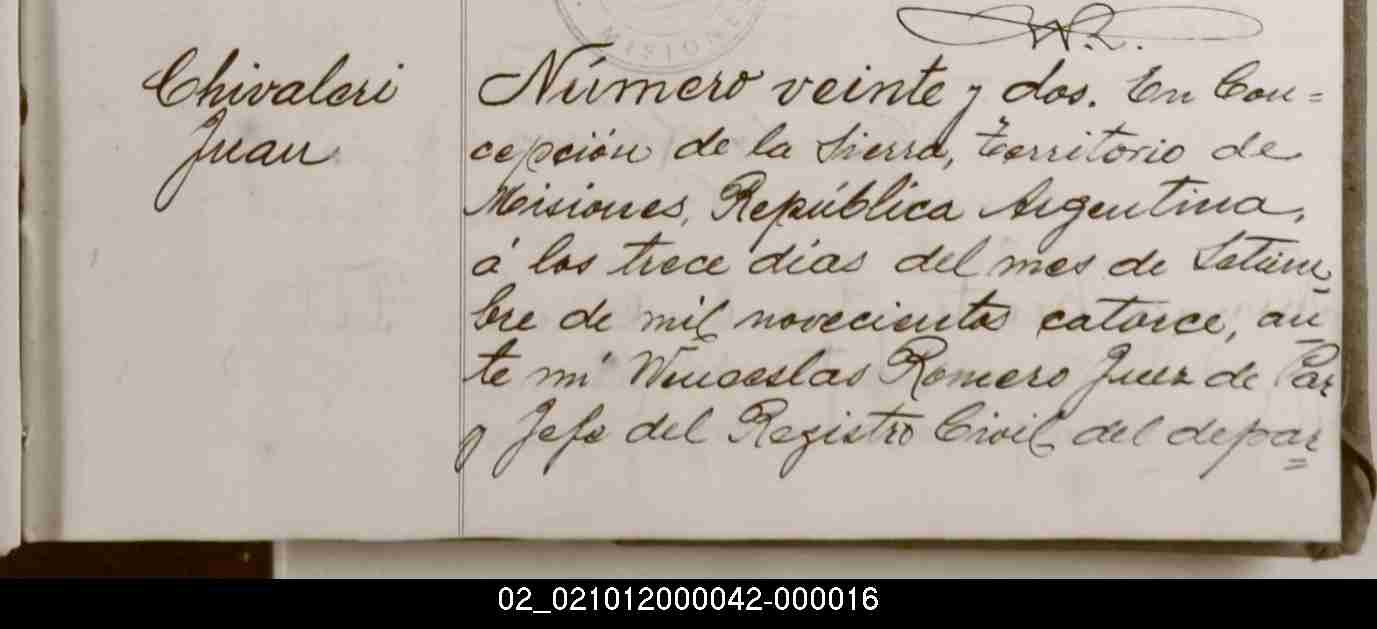 MISIONES
W.R.
Chivaleri
Juan
Número veinte y dos. En Con=
cepción de la Sierra, Territorio de
Misiones, República Argentina,
á los trece días del mes de Setiem
bre de mil novecientos catorce, an
te mi Wenceslao Romero Juez de Paz
y Jefe del Registro Civil del depar
02_021012000042-000016